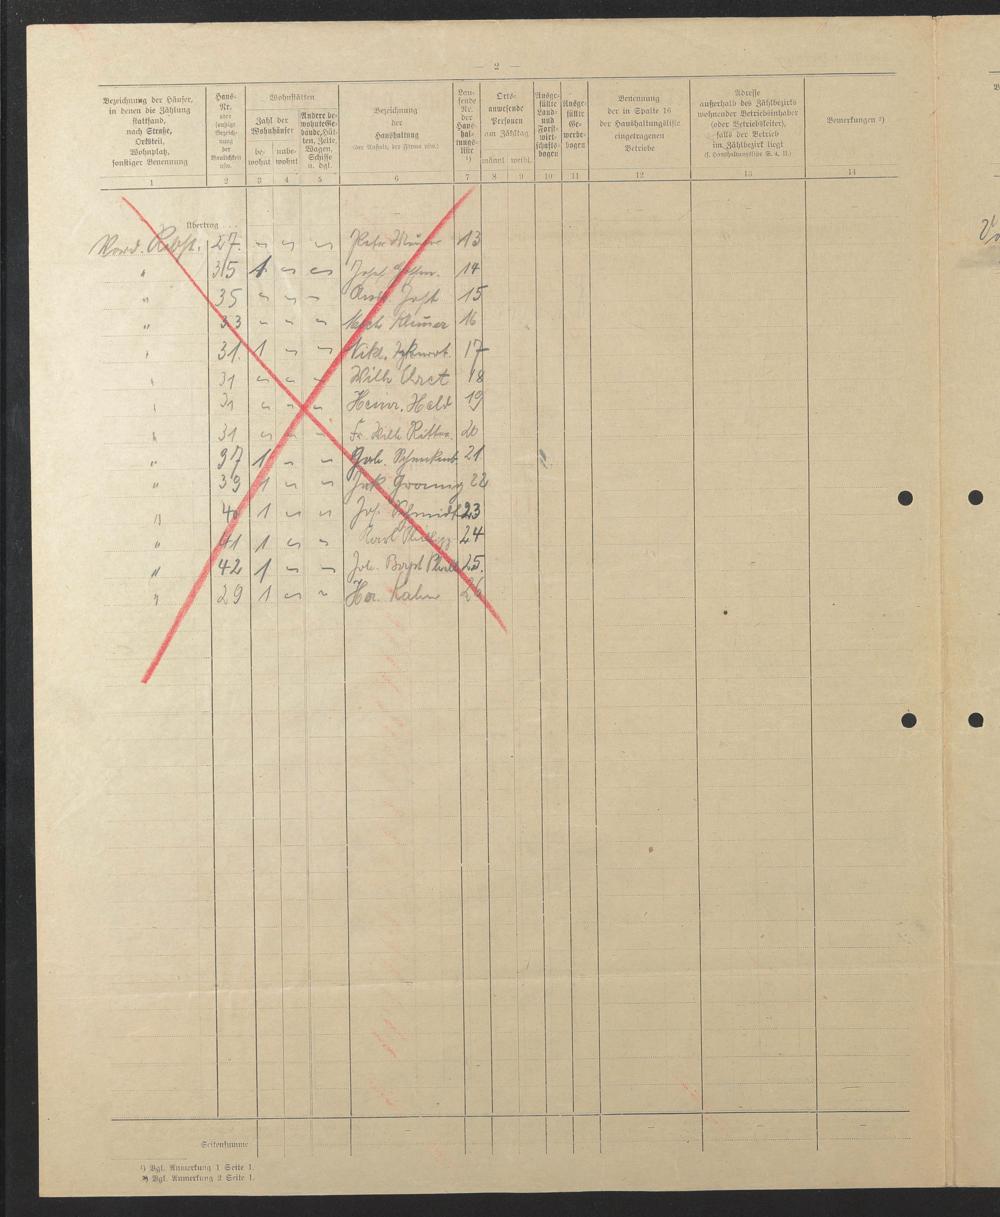 — 2 —
Bezeichnung der Häuser,
in denen die Zählung
stattfand,
nach Straße,
Ortsteil,
Wohnplatz,
sonstiger Benennung
Haus-
Nr.
oder
sonstige
Bezeich-
nung
der
Baulichkeit
usw.
Wohnstätten
Zahl der
Wohnhäuser
be-
wohnt
unbe-
wohnt
Andere be-
wohnte Ge-
bäude, Hüt-
ten, Zelte,
Wagen,
Schiffe
u. dgl.
Bezeichnung
der
Haushaltung
(der Anstalt, der Firma usw.)
Lau-
fende
Nr.
der
Haus-
hal-
tungs-
liste
¹)
Orts-
anwesende
Personen
am Zähltag
männl.
weibl.
Ausge-
füllte
Land-
und
Forst-
wirt-
schafts-
bogen
Ausge-
füllte
Ge-
werbe-
bogen
Benennung
der in Spalte 16
der Haushaltungsliste
eingetragenen
Betriebe
Adresse
außerhalb des Zählbezirks
wohnender Betriebsinhaber
(oder Betriebsleiter),
falls der Betrieb
im Zählbezirk liegt
(s. Haushaltungsliste S. 4, II.)
Bemerkungen ²)
1 2 3 4 5 6 7 8 9 10 11 12 13 14
Übertrag . . .
27. Peter 13
" 315 1 Josef 14
" 35 Jost 15
" 33 16
" 31. 1 Nikl. 17
" 31 Wilh 18
" 31 Heinr. Held 19
" 31 Fr. Wilh Ritter. 20
" 37 1 Joh. 21
" 39 1 Jak 22
" 40 1 Joh. Schmidt 23
" 41 1 Karl 24
" 42 1 Joh. Bapt 25.
" 29 1 Kahn 26
Seitensumme
¹) Vgl. Anmerkung 1 Seite 1.
²) Vgl. Anmerkung 2 Seite 1.